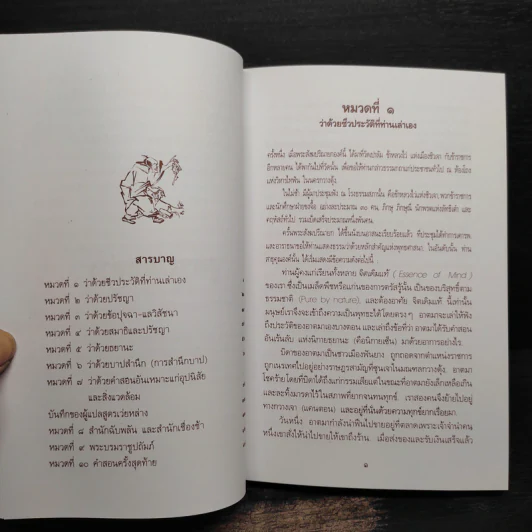 สารบาญ
หมวดที่ ๑ ว่าด้วยชีวประวัติที่ท่านเล่าเอง
หมวดที่ ๒ ว่าด้วยปรัชญา
หมวดที่ ๓ ว่าด้วยข้อปุจฉา-แลวิสัชนา
หมวดที่ ๔ ว่าด้วยสมาธิและปรัชญา
หมวดที่ ๕ ว่าด้วยธยานะ
หมวดที่ ๖ ว่าด้วยบาปสำนึก (การสำนึกบาป)
หมวดที่ ๗ ว่าด้วยคำสอนอันเหมาะแก่อุปนิสัย
และสิ่งแวดล้อม
บันทึกของผู้แปลสูตรเว่ยหล่าง
หมวดที่ ๘ สำนักฉับพลัน และสำนักเชื่องช้า
หมวดที่ ๙ พระบรมราชูปถัมภ์
หมวดที่ ๑๐ คำสอนครั้งสุดท้าย
หมวดที่ ๑
ว่าด้วยชีวประวัติที่ท่านเล่าเอง
ครั้งหนึ่ง เมื่อพระสังฆปริณายกองค์นี้ ได้มาที่วัดเปาลัม
อีกหลายคน ได้พากันไปที่วัดนั้น เพื่อขอให้ท่านกล่าวธรรมกถาแก่ประชาชนทั่วไป ณ ห้องโถง
แห่งวิหารไทฟัน ในนครกวางตุ้ง
ในไม่ช้า มีผู้มาประชุมฟัง ณ โรงธรรมสภานั้น คือข้าหลวงไว่แห่งชิวเจา พวกข้าราชการ
และนักศึกษาฝ่ายขงจื้อ อย่างละประมาณ ๓๐ คน ภิกษุ ภิกษุณี
คฤหัสถ์ทั่วไป รวมเบ็ดเสร็จประมาณหนึ่งพันคน
ครั้นพระสังฆปริณายก ได้ขึ้นนั่งบนอาสนะเรียบร้อยแล้ว ที่ประชุมได้ทำการเคารพ
และอาราธนาขอให้ท่านแสดงธรรมว่าด้วยหลักสำคัญแห่งพุทธศาสนา ในอันดับนั้น ท่าน
สาธุคุณองค์นั้น ได้เริ่มแสดงมีข้อความดังต่อไปนี้
ท่านผู้คงแก่เรียนทั้งหลาย จิตเดิมแท้ ( Essence of Mind )
ของเรา ซึ่งเป็นเมล็ดพืชหรือแก่นของการตรัสรู้นั้น เป็นของบริสุทธิ์ตาม
ธรรมชาติ (Pure by nature), และต้องอาศัย จิตเดิมแท้ นี้เท่านั้น
มนุษย์เราจึงจะเข้าถึงความเป็นพุทธะได้โดยตรงๆ อาตมาจะเล่าให้ฟัง
ถึงประวัติของอาตมาเองบางตอน และเล่าถึงข้อที่ว่า อาตมาได้รับคำสอน
อันเร้นลับ แห่งนิกายธยานะ (คือนิกายเซ็น) มาด้วยอาการอย่างไร
บิดาของอาตมาเป็นชาวเมืองฟันยาง ถูกถอดจากตำแหน่งราชการ
ถูกเนรเทศไปอยู่อย่างราษฎรสามัญที่ซุนเจาในมณฑลกวางตุ้ง อาตมา
โชคร้ายโดยที่บิดาได้ถึงแก่กรรมเสียแต่ในขณะที่อาตมายังเล็กเหลือเกิน
และละทิ้งมารดาไว้ในสภาพที่ยากจนทนทุกข์ เราสองคนจึงย้ายไปอยู่
ทางกวางเจา (แคนตอน) และอยู่ที่นั่นด้วยความทุกข์ยากเรื่อยมา
วันหนึ่ง อาตมากำลังนำฟืนไปขายอยู่ที่ตลาดเพราะเจ้าจำนำคน
หนึ่งเขาสั่งให้นำไปขายให้เขาถึงร้าน เมื่อส่งของและรับเงินเสร็จแล้ว
๑